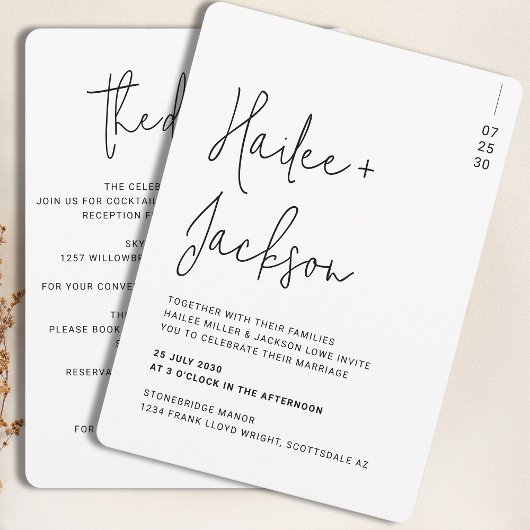 Hailee +
Jackson
07
25
30
TOGETHER WITH THEIR FAMILIES
HAILEE MILLER & JACKSON LOWE INVITE
YOU TO CELEBRATE THEIR MARRIAGE
25 JULY 2030
AT 3 O'CLOCK IN THE AFTERNOON
STONEBRIDGE MANOR
1234 FRANK LLOYD WRIGHT, SCOTTSDALE AZ
The
THE
JOIN US FOR
RECEPTION
1257
FOR YOUR
PLEASE BOOK
FOR